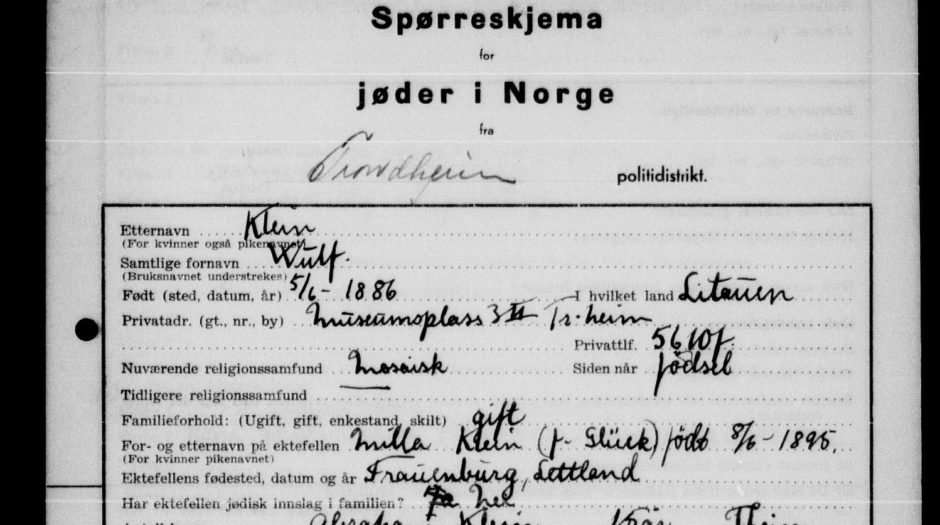 Spørreskjema
for
jøder i Norge
fra
Trondheim politidistrikt.
Etternavn Klein
(For kvinner også pikenavnet)
Samtlige fornavn Wulf.
(Bruksnavnet understrekes)
Født (sted, datum, år) 5/6 - 1886 I hvilket land Litauen
Privatadr. (gt., nr., by) Museumsplass 3 II Tr.heim
Privattlf. 5610f.
Nuværende religionssamfund Mosaisk Siden når fødsel
Tidligere religionssamfund
Familieforhold: (Ugift, gift, enkestand, skilt) gift
For- og etternavn på ektefellen Milla Klein (f. Glück) født 8/6 - 1895.
(For kvinner pikenavnet)
Ektefellens fødested, datum og år Frauenburg, Lettland
Har ektefellen jødisk innslag i familien?
Klein